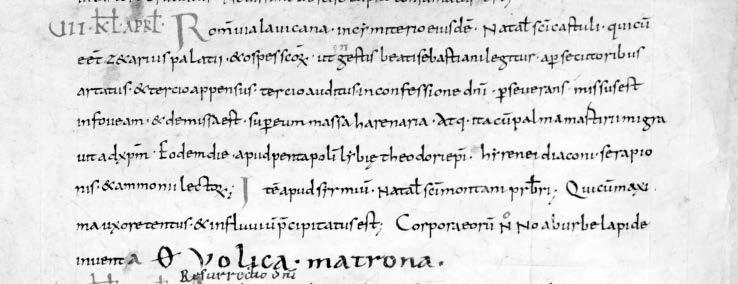 VII · KL̄ · APRL̄ · Rom̄ via lavicana · incymiterio eiusdē · Natal̄ sc̄i castuli · qui cū
eēt zetarius palatii · & ospes sc̄orꝝ · ut ingestis beati sebastiani legitur · a persecutoribus
artatus & tercio appensus · tercio auditus inconfessione dn̄i · perseverans · missus est
infoveam · & demissa est · super eum massa harenaria · Atq· ita cū palma martirii migra
vit ad xp̄m · Eodem die · apud pentapoli lybię theodori ep̄i · hyrenei diaconi · serapio
nis · & ammonii lectorꝝ ; Itē apud syrmiū · Natal̄ sc̄i montani pr̄bri · Qui cū maxi
ma uxore tentus · & influvium p̄cipitatus est ; Corpora eorū N̊ No ab urbe lapide
inventa
matrona ·
Resurrectio dn̄i